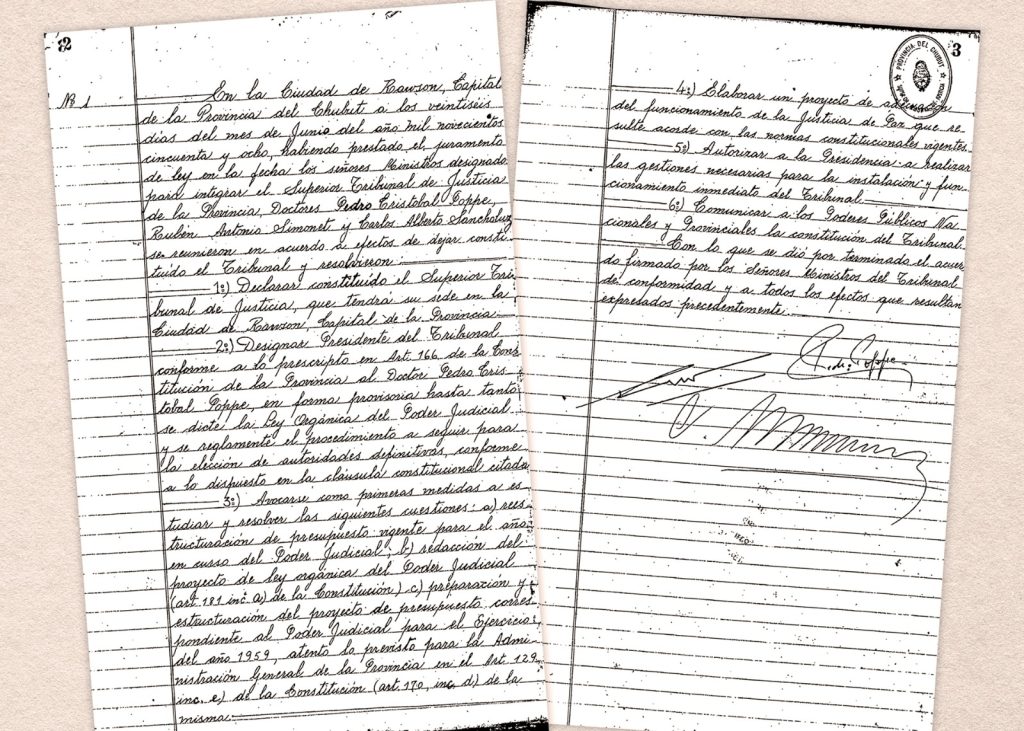 2
Nº 1
En la Ciudad de Rawson, Capital
de la Provincia del Chubut a los veintiséis
días del mes de Junio del año mil novecientos
cincuenta y ocho, habiendo prestado el juramento
de ley en la fecha los señores Ministros designado
para integrar el Superior Tribunal de Justicia
de la Provincia, Doctores Pedro Cristobal Poppe,
Rubén Antonio Simonet y Carlos Alberto Sancholuz
se reunieron en acuerdo a efectos de dejar consti-
tuido el Tribunal y resolvieron:
1º) Declarar constituído el Superior Tri
bunal de Justicia, que tendrá su sede en la
Ciudad de Rawson, Capital de la Provincia
2º) Designar Presidente del Tribunal
conforme a lo prescripto en Art. 166 de la Cons
titución de la Provincia al Doctor Pedro Cris
tobal Poppe, en forma provisoria hasta tanto
se dicte la Ley Orgánica del Poder Judicial
y se reglamente el procedimiento a seguir para
la elección de autoridades definitivas, conforme
a lo dispuesto en la cláusula constitucional citada
3º) Avocarse como primeras medidas a es
tudiar y resolver las siguientes cuestiones: a) rees
tructuración de presupuesto vigente para el año
en curso del Poder Judicial; b) redacción del
proyecto de ley orgánica del Poder Judicial
(art. 181 inc. a) de la Constitución) c) preparación y
estructuración del proyecto de presupuesto corres-
pondiente al Poder Judicial para el Ejercicio
del año 1959, atento lo previsto para la Admi-
nistración General de la Provincia en el Art. 129
inc. e) de la Constitución (art. 170, inc. d) de la
misma.
3
PROVINCIA DEL CHUBUT
4º) Elaborar un proyecto de adecuación
del funcionamiento de la Justicia de Paz que re-
sulte acorde con las normas constitucionales vigentes
5º) Autorizar a la Presidencia a realizar
las gestiones necesarias para la instalación y fun-
cionamiento inmediato del Tribunal.
6º) Comunicar a los Poderes Públicos Na
cionales y Provinciales la constitución del Tribunal.
Con lo que se dió por terminado el acuer
do firmado por los Señores Ministros del Tribunal
de conformidad y a todos los efectos que resultan
expresados precedentemente.